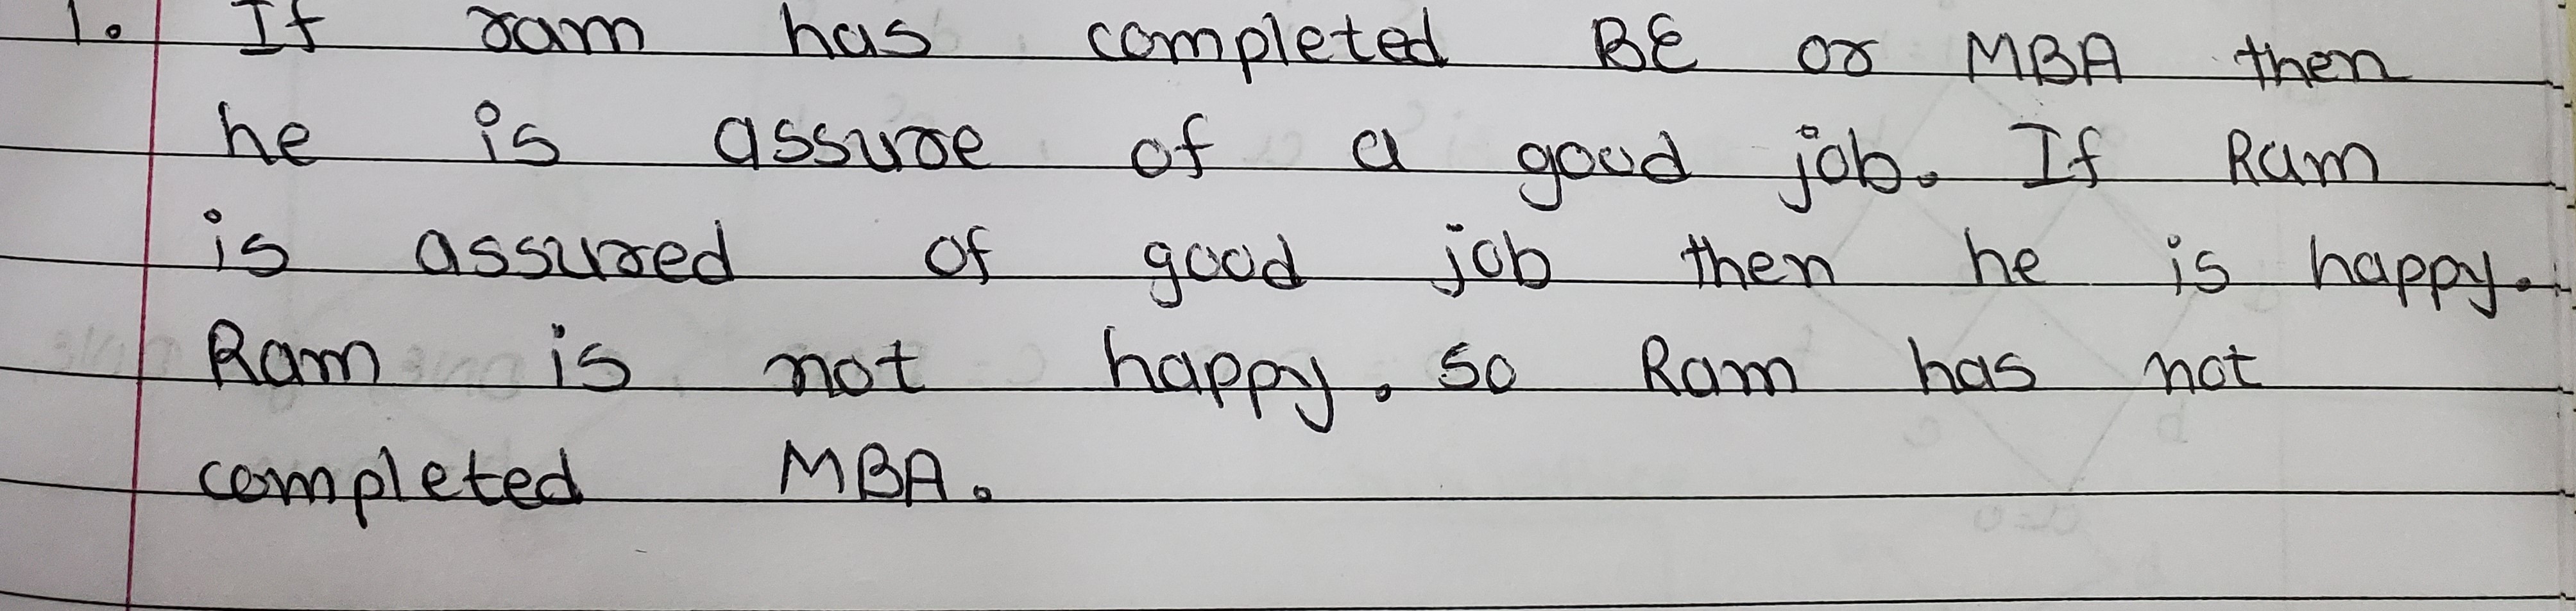 1. If ram has completed BE or MBA then
he is assure of a good job. If Ram
is assured of good job then he is happy.
Ram is not happy. so Ram has not
completed MBA.